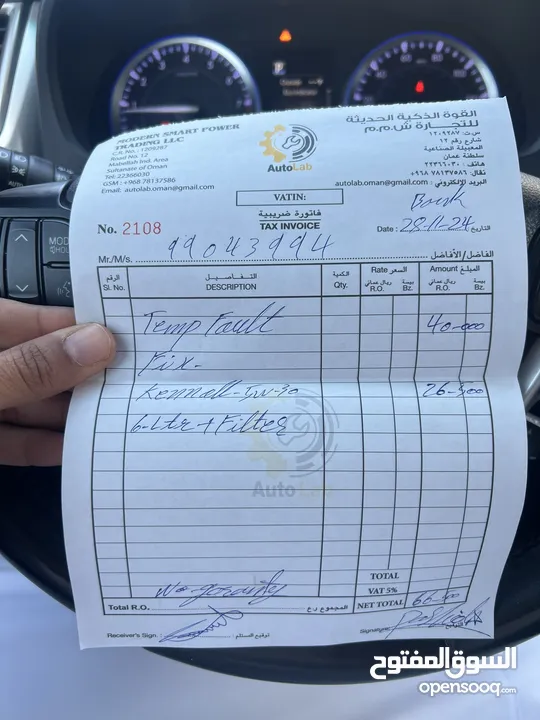 MODERN SMART POWER
TRADING LLC
C.R. No.: 1209287
Road No. 12
Mabellah Ind. Area
Sultanate of Oman
Tel: 22366030
GSM : +968 78137586
autolab.oman@gmail.com
AutoLab
القوة الذكية الحديثة
للتجارة ش.م.م
س.ت: ١٢٠٩٢٨٧
شارع رقم ١٢
المعبيلة الصناعية
سلطنة عمان
هاتف: ٢٢٣٦٦٠٣٠
نقال: ٧٨١٣٧٥٨٦ ٩٦٨+
البريد الإلكتروني: autolab.oman@gmail.com
VATIN:
فاتورة ضريبية
TAX INVOICE
No. 2108
Date : 28-11-24 التاريخ
Mr./M/s. 99043994 الفاضل/الأفاضل
الرقم التفاصيل الكمية Rate السعر Amount المبلغ
Sl. No. DESCRIPTION Qty. ريال عماني R.O. بيسة Bz. ريال عماني R.O. بيسة Bz.
Temp Fault 40-000
Fix-
Kendall-5w-30 26-500
6-Ltr + Filter
AutoLab
TOTAL
VAT 5%
Total R.O. المجموع ر.ع NET TOTAL 66-500
Receiver's Sign : توقيع المستلم :
Signature
السوق المفتوح
opensooq.com
MODE